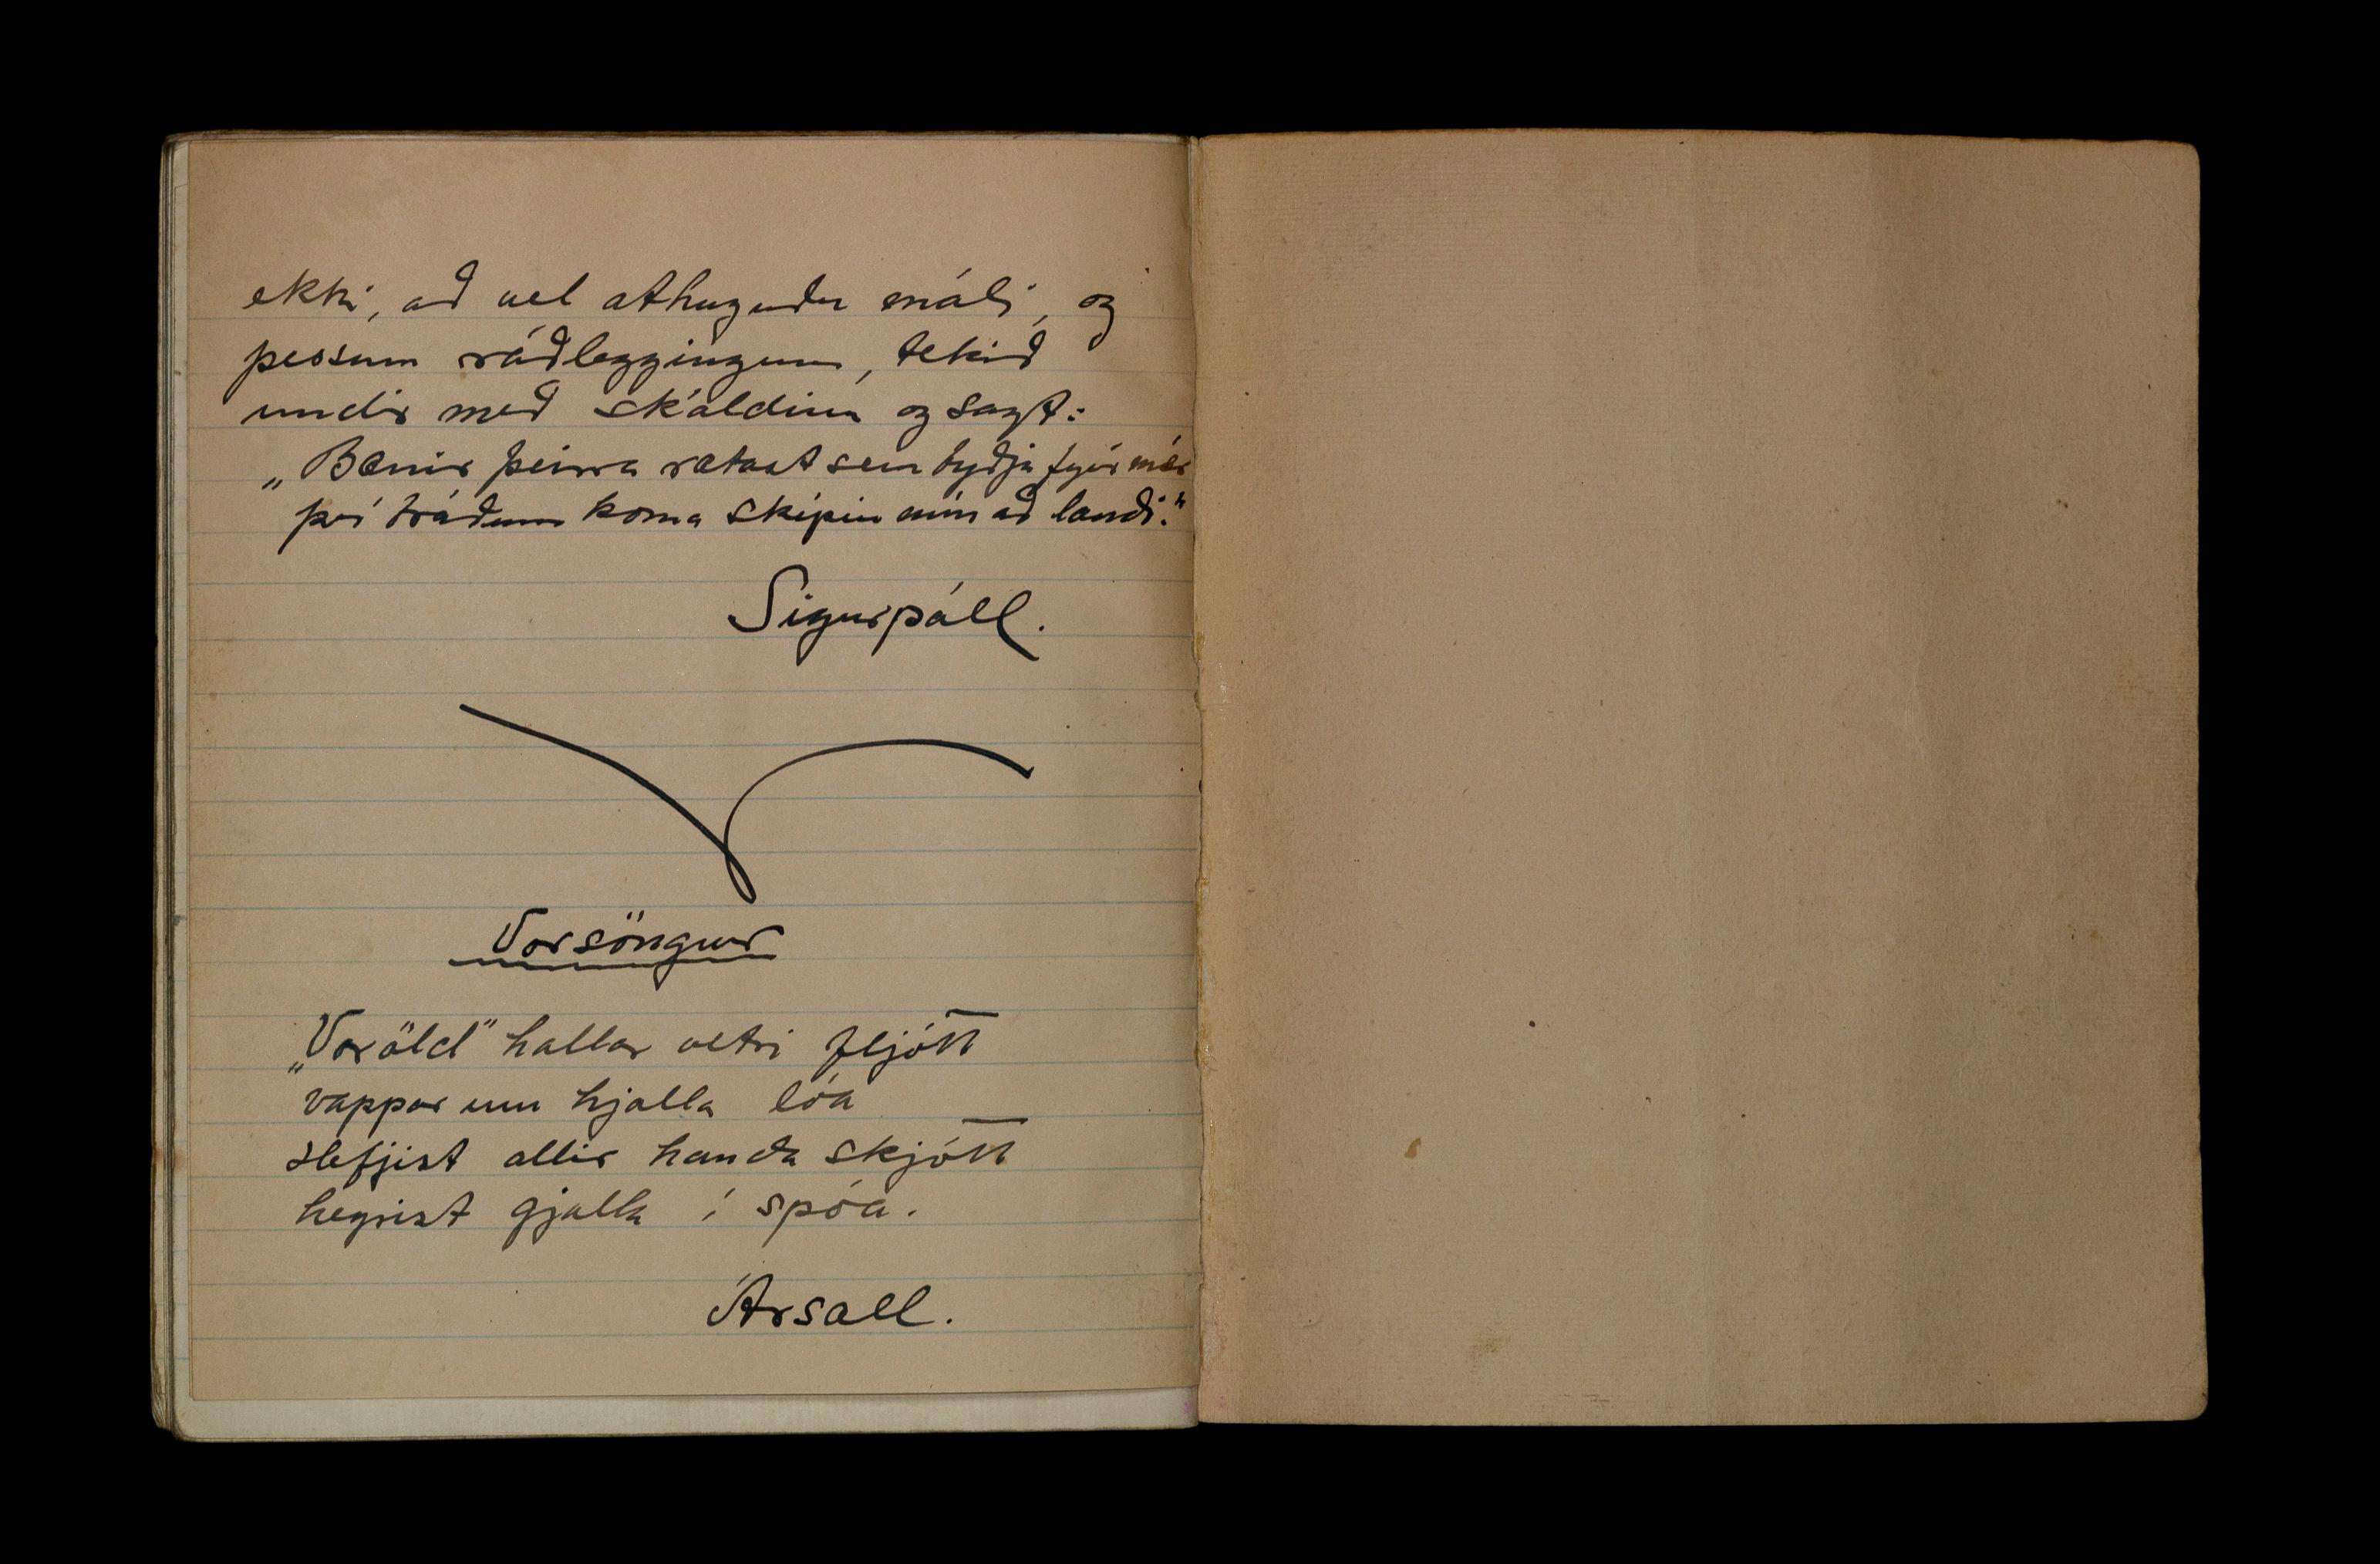 ekki, að vel athuguðu máli, og
þessum ráðleggingum, tekið
undir með skáldinu og sagt:
„Bænir þeirra rætast sem byðja fyrir mér
því bráðum koma skipin mín að landi."
Sigurpáll.
Vorsöngur
„Voröld" hallar vetri fljótt
vappar um hjalla lóa
Hefjist allir handa skjótt
heyrist gjalla í spóa.
Ársæll.